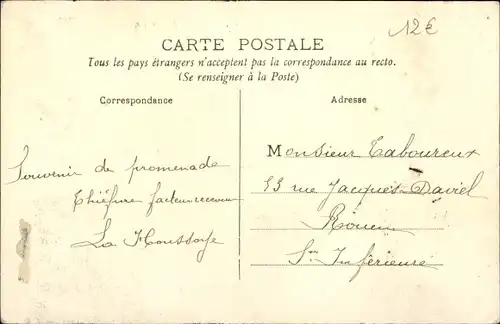 12€
CARTE POSTALE
Tous les pays étrangers n'acceptent pas la correspondance au recto.
(Se renseigner à la Poste)
Correspondance
Adresse
Souvenir de promenade
facteur receveur
La Houssaye
Monsieur Taboureux
53 rue Jacques-Daviel
Rouen
Sne Inférieure